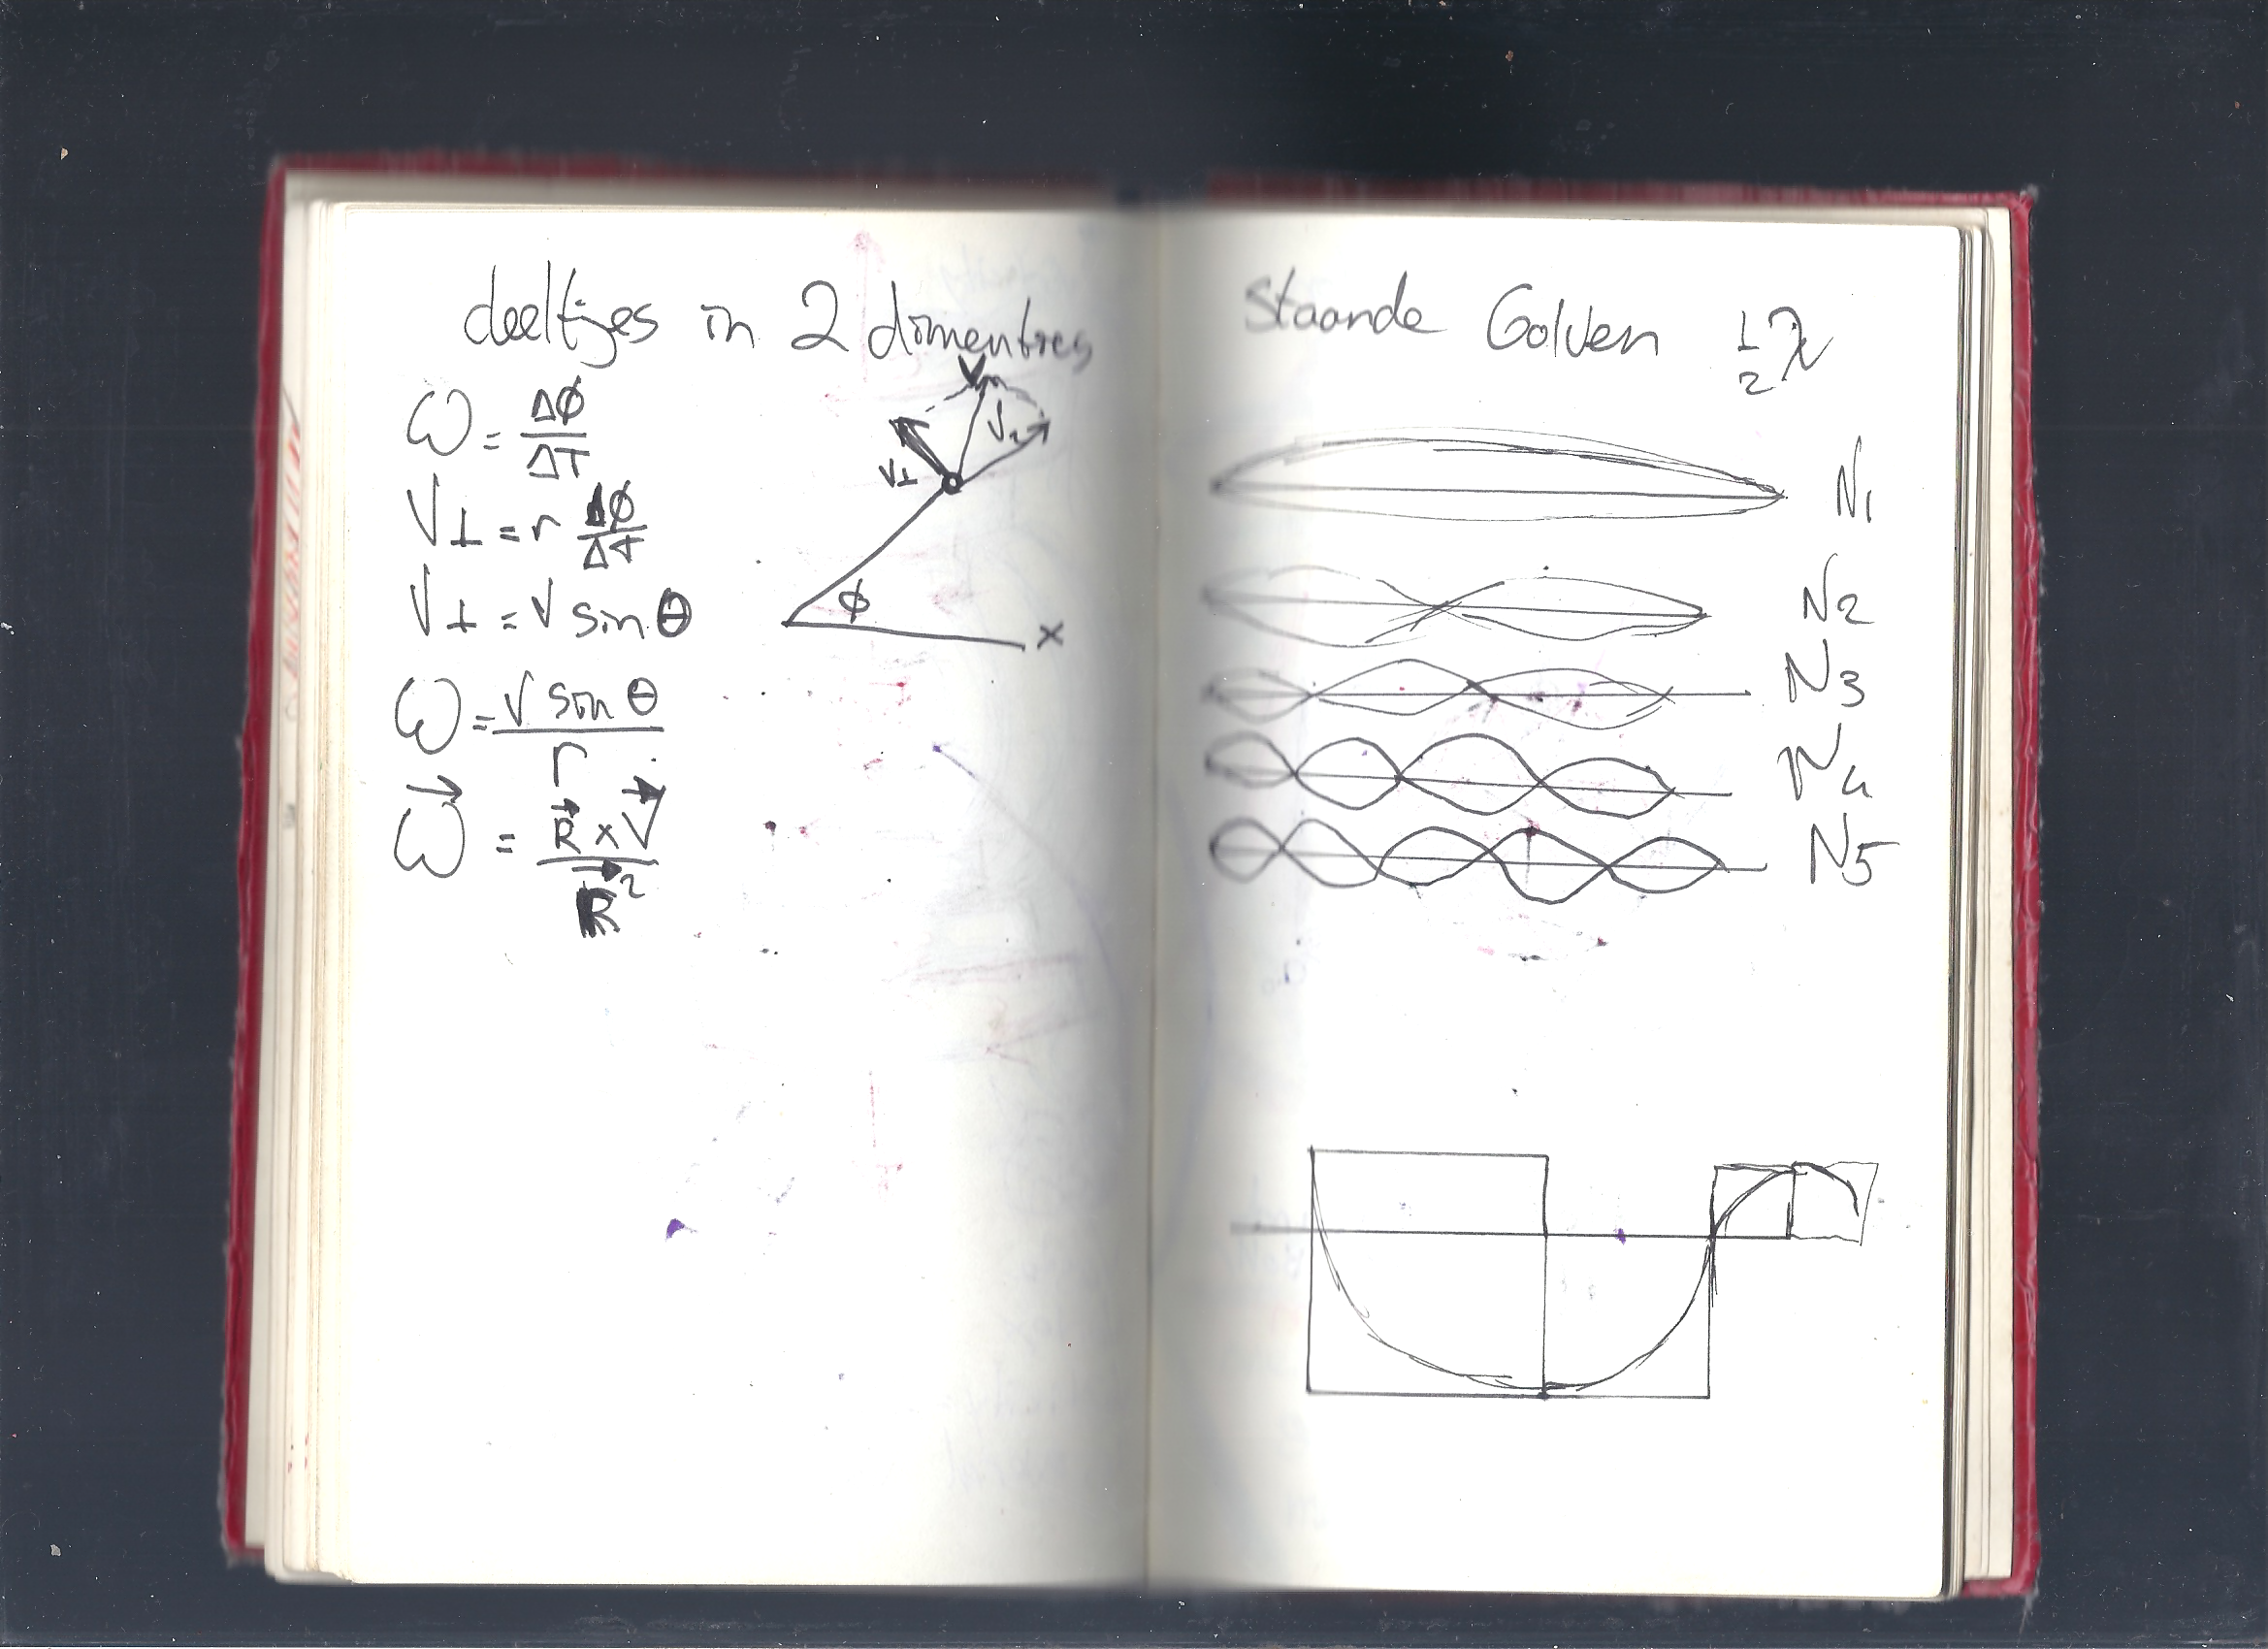 deeltjes in 2 dimenties
ω = Δϕ / ΔT
V⊥ = r Δϕ / ΔT
V⊥ = V sin θ
ω = V sin θ / r
ω⃗ = R⃗ x V⃗ / R⃗²
V
V⊥
ϕ
x
Staande Golven ½ λ
N1
N2
N3
N4
N5